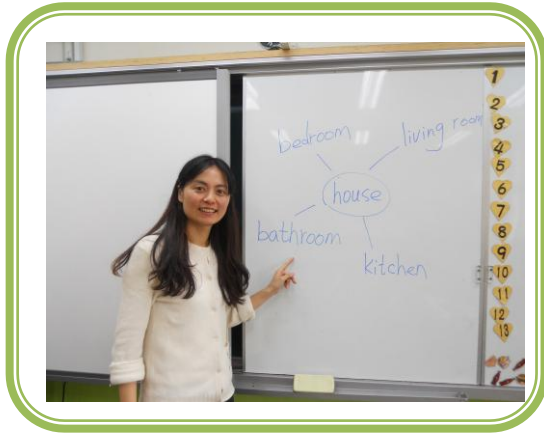 bedroom
living room
house
bathroom
kitchen
1
2
3
4
5
6
7
8
9
10
11
12
13